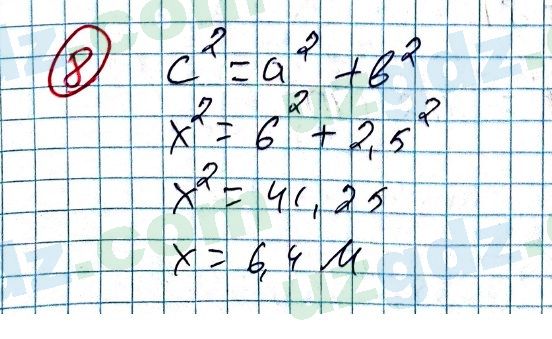 8
c² = a² + b²
x² = 6² + 2,5²
x² = 41,25
x = 6,4 м
uzgdz.com